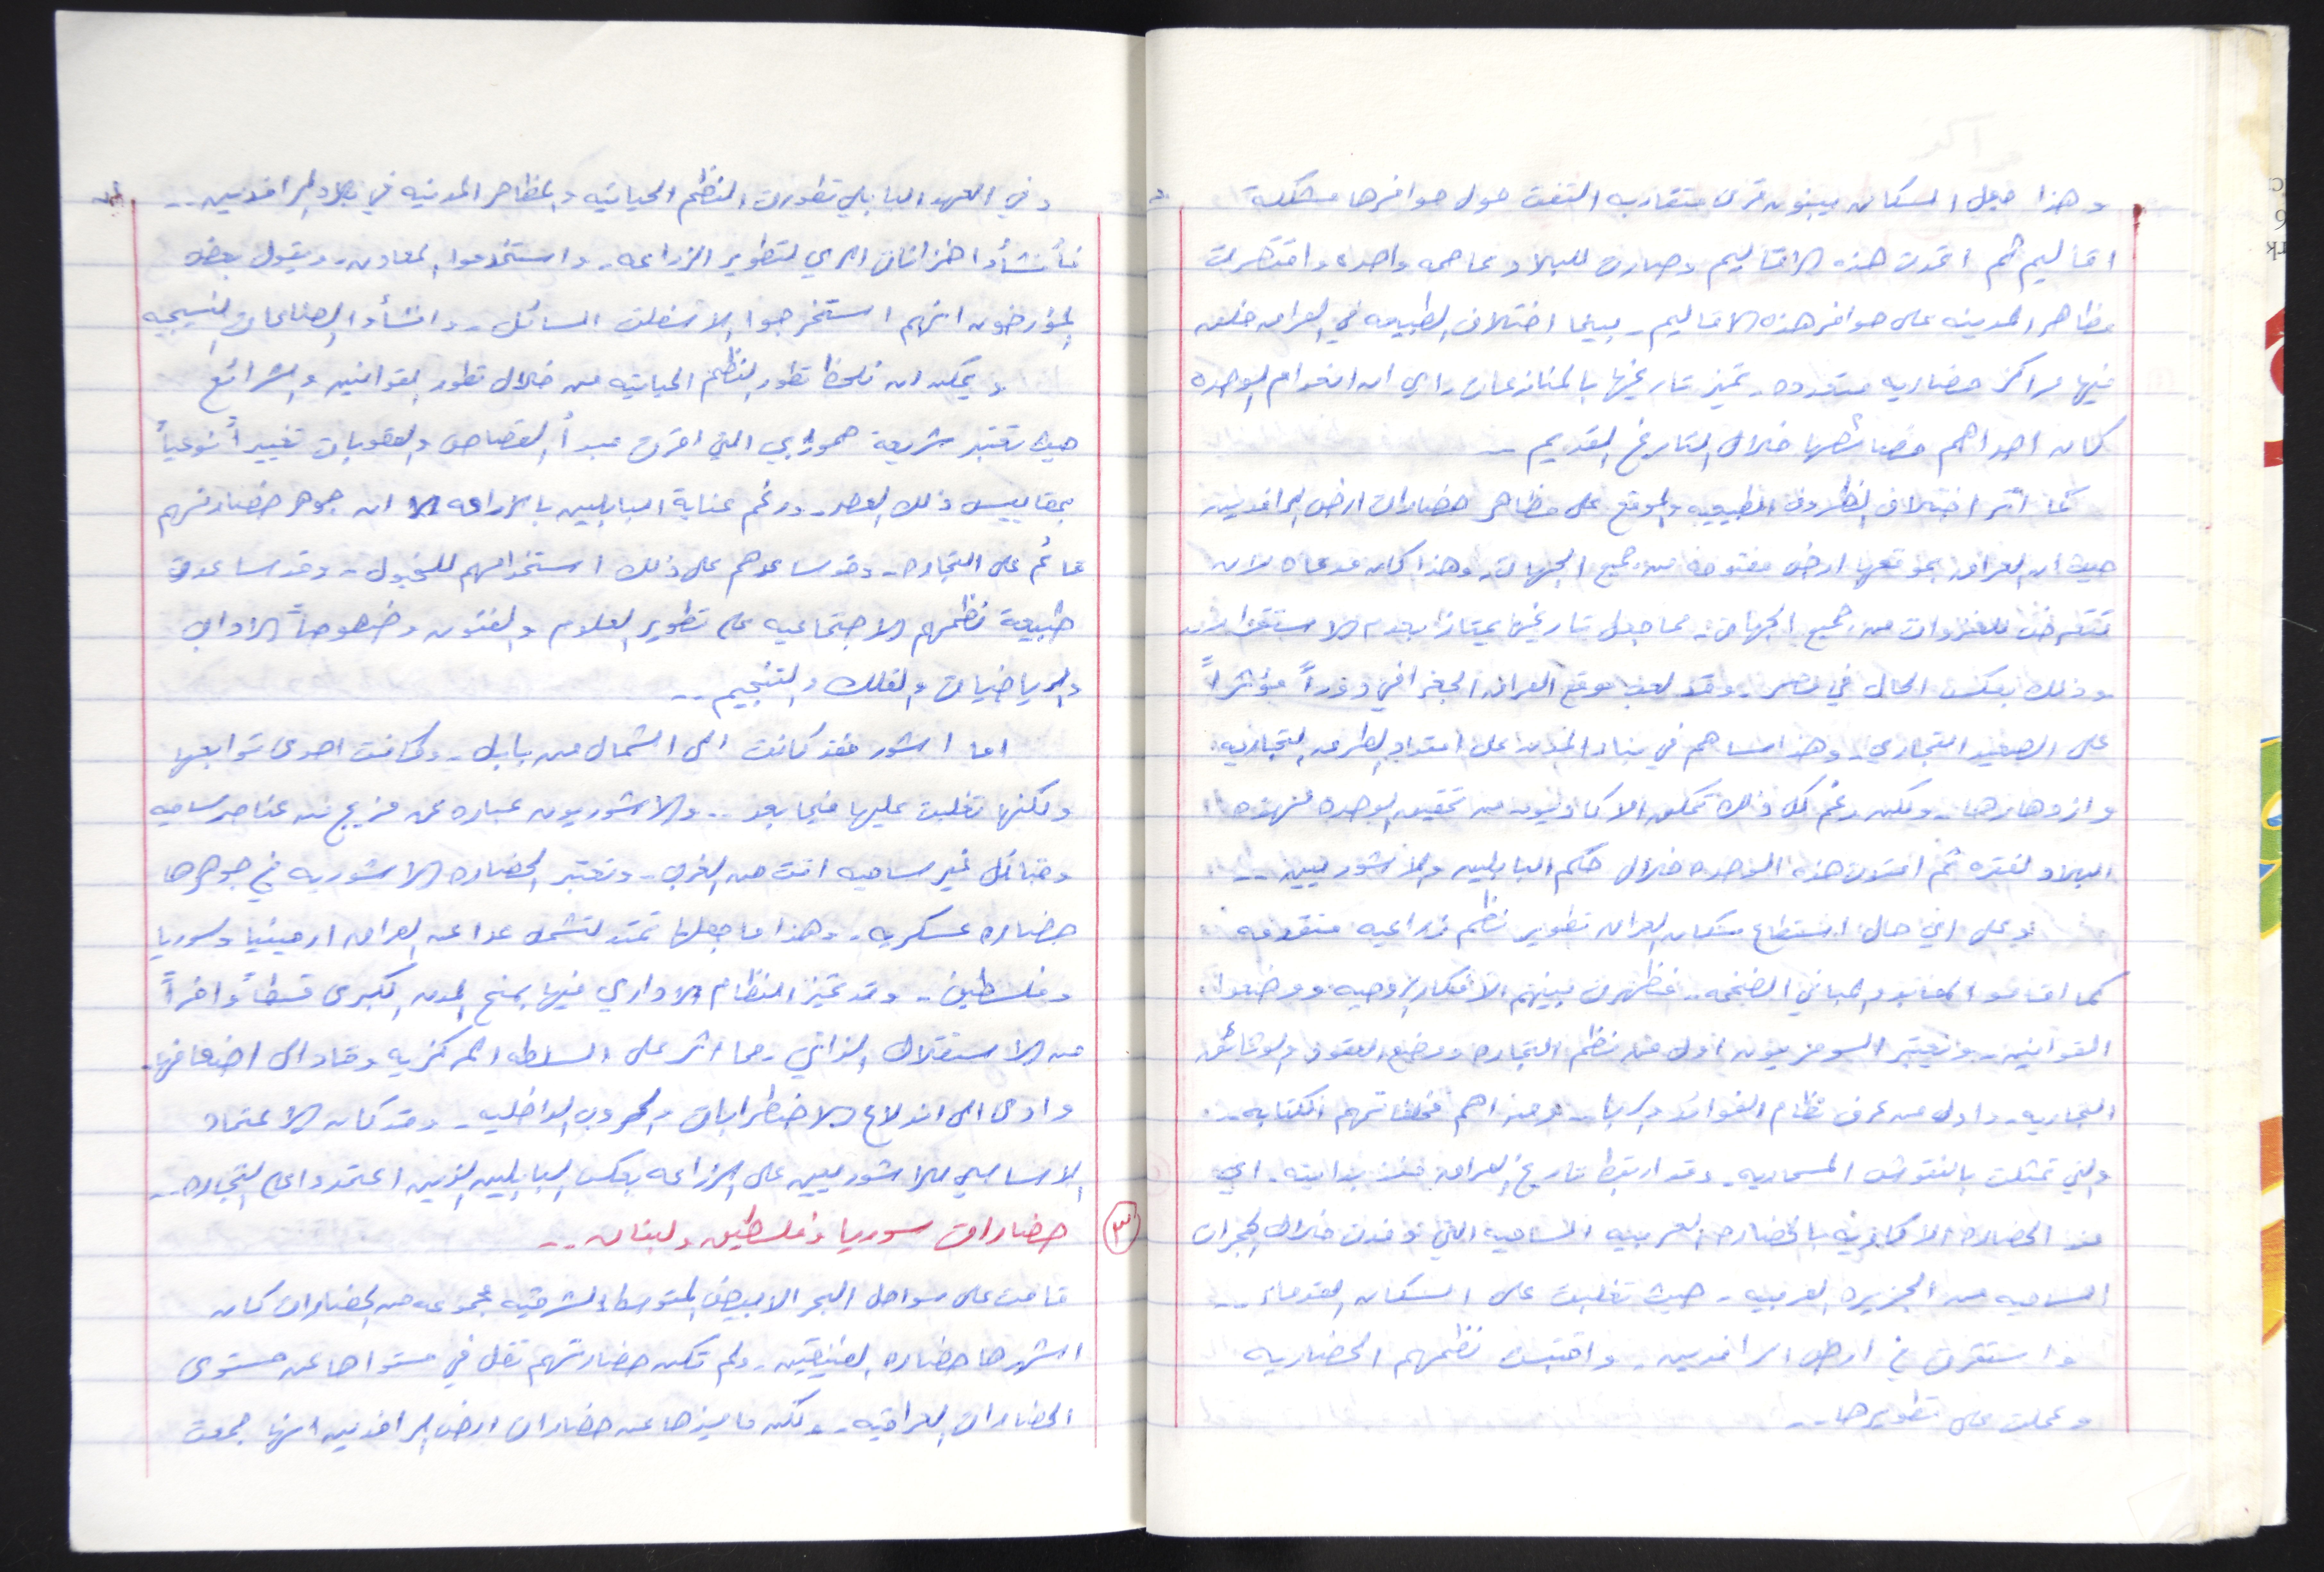 وهذا جعل السكان يبنون قرى متقاربه التفت حول حوافرها مشكلة
اقاليم ثم اتحدت هذه الاقاليم وصارت للبلاد عاصمه واحده واقتصرت
مظاهر المدينه على حوافر هذه الاقاليم - بينما اختلاف الطبيعه في العراق خلق
فيها مراكز حضاريه متعدده - تميز تاريخها بالمنازعات - اي ان انعدام الوحده
كان احد اهم خصائصها خلال التاريخ القديم --
كما أثر اختلاف الظروف الطبيعيه والموقع على مظاهر حضارات ارض الرافدين
حيث ان العراق بموقعها ارض مفتوحه من جميع الجهات - وهذا كان مدعاه لان
تتعرض للغزوات من جميع الجهات - مما جعل تاريخها يمتاز بعدم الاستقرار -
وذلك بعكس الحال في مصر - وقد لعب موقع العراق الجغرافي دوراً مؤثراً
على الصعيد التجاري - وهذا ساهم في بناء المدن على امتداد الطرق التجاريه
وازدهارها - ولكن رغم كل ذلك تمكن الاكاديون من تحقيق الوحده لهذه
البلاد لفتره ثم امتدت هذه الوحده خلال حكم البابليين والاشوريين --
وعلى اي حال استطاع سكان العراق تطوير نظم زراعيه متقدمه
كما اقاموا المعابد والمباني الضخمه - فظهرت بينهم الافكار الروحيه ووضعوا
القوانين - ويعتبر السومريون اول من نظم التجاره ووضع العقود والوثائق
التجاريه - واول من عرف نظام الفوائد والربا - ومن اهم مخلفاتهم الكتابه -
والتي تمثلت بالنقوش المسماريه - وقد ارتبط تاريخ العراق منذ بدايته - اي
منذ الحضاره الاكاديه بالحضاره العربيه الساميه التي وفدت خلال الهجرات
الساميه من الجزيره العربيه - حيث تغلبت على السكان القدماء --
واستقرت في ارض الرافدين - واقتبست نظمهم الحضاريه
وعملت على تطويرها --
وفي العهد البابلي تطورت النظم الحياتيه والمظاهر المدنيه في بلاد الرافدين --
فأنشأوا خزانات الري لتطوير الزراعه - واستخدموا المعادن - ويقول بعض
المؤرخون انهم استخرجوا الاسفلت السائل - وانشأوا الصناعات النسيجيه
ويمكن ان نلحظ تطور النظم الحياتيه من خلال تطور القوانين والشرائع
حيث تعتبر شريعة حمورابي التي اقرت مبدأ القصاص والعقوبات تغييراً نوعياً
بمقاييس ذلك العصر - ورغم عناية البابليين بالزراعه الا ان جوهر حضارتهم
قائم على التجاره - وقد ساعدهم على ذلك استخدامهم للخيول - وقد ساعدت
طبيعة نظمهم الاجتماعيه على تطوير العلوم والفنون وخصوصاً الاداب
والرياضيات والفلك والتنجيم --
اما اشور فقد كانت الى الشمال من بابل - وكانت احدى توابعها
ولكنها تغلبت عليها فيما بعد -- والاشوريون عباره عن مزيج من عناصر ساميه
وقبائل غير ساميه اتت من الغرب - وتعتبر الحضاره الاشوريه في جوهرها
حضاره عسكريه - وهذا ما جعلها تمتد لتشمل عدا عن العراق ارمينيا وسوريا
وفلسطين - وقد تميز النظام الاداري فيها بمنح المدن الكبرى قسطاً وافراً
من الاستقلال الذاتي - مما أثر على السلطه المركزيه وقاد الى اضعافها -
وادى الى اندلاع الاضطرابات والحروب الداخليه - وقد كان الاعتماد
الاساسي للاشوريين على الزراعه بعكس البابليين الذين اعتمدوا على التجاره --
٣ حضارات سوريا وفلسطين ولبنان --
قامت على سواحل البحر الابيض المتوسط الشرقيه مجموعه من الحضارات كان
اشهرها حضاره الفينيقين - ولم تكن حضارتهم تقل في مستواها عن مستوى
الحضارات العراقيه - ولكن ما يميزها عن حضارات ارض الرافدين انها جمعت